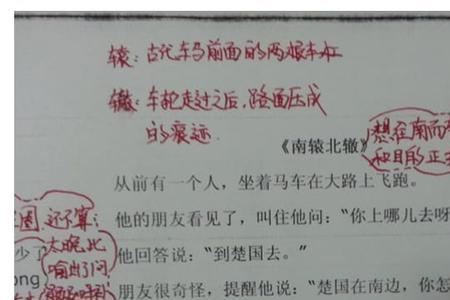 辕：古代车马前面的两根车杠
辙：车把走过之后，路面压成
的痕迹
《南辕北辙》
想在南而
和目的正
从前有一个人，坐着马车在大路上飞跑。
还不算：
他的朋友看见了，叫住他问：“你上哪儿去呀
少了
他回答说：“到楚国去。”
ong
朋友很奇怪，提醒他说：“楚国在南边，你怎